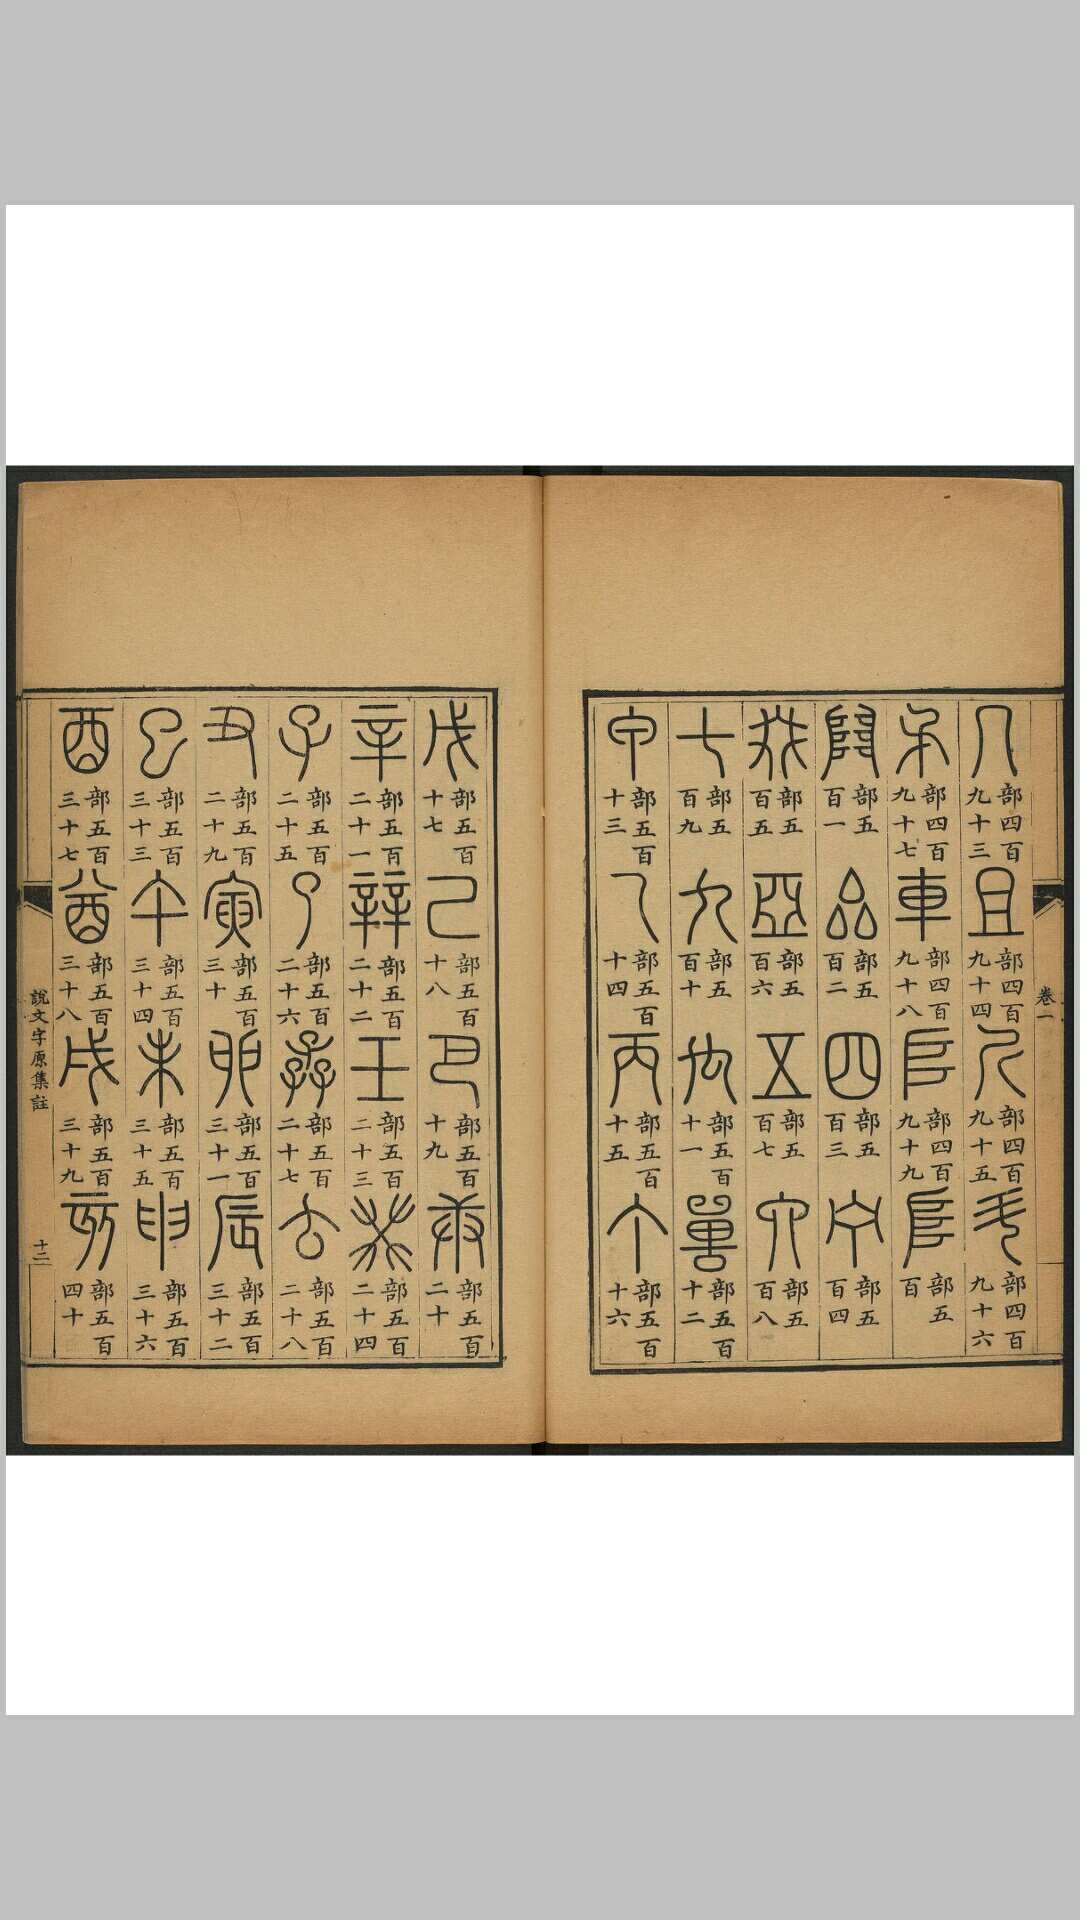 卷一
几部四百九十三且部四百九十四斤部四百九十五斗部四百九十六
矛部四百九十七車部四百九十八𠂤部四百九十九𨸏部五百
𨺅部五百一厽部五百二四部五百三宁部五百四
叕部五百五亞部五百六五部五百七六部五百八
七部五百九九部五百十禸部五百十一嘼部五百十二
甲部五百十三乙部五百十四丙部五百十五丁部五百十六
戊部五百十七己部五百十八巴部五百十九庚部五百二十
辛部五百二十一辡部五百二十二壬部五百二十三癸部五百二十四
子部五百二十五了部五百二十六孨部五百二十七𠫓部五百二十八
丑部五百二十九寅部五百三十卯部五百三十一辰部五百三十二
巳部五百三十三午部五百三十四未部五百三十五申部五百三十六
酉部五百三十七酋部五百三十八戌部五百三十九亥部五百四十
說文字原集註
十二